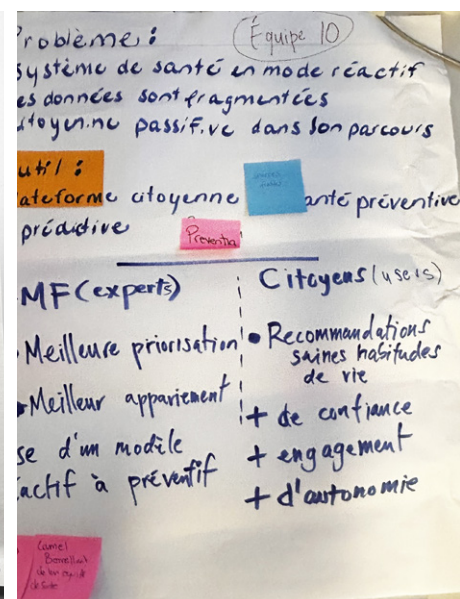 roblème : Équipe 10
système de santé en mode réactif
es données sont fragmentées
itoyen.ne passif.ve dans son parcours
util :
ateforme citoyenne anté préventive
prédictive
Preventia
MF (experts)
Meilleure priorisation
Meilleur appariement
se d'un modèle
actif à préventif
Citoyens (users)
• Recommandations
saines habitudes
de vie
+ de confiance
+ engagement
+ d'autonomie
Camel